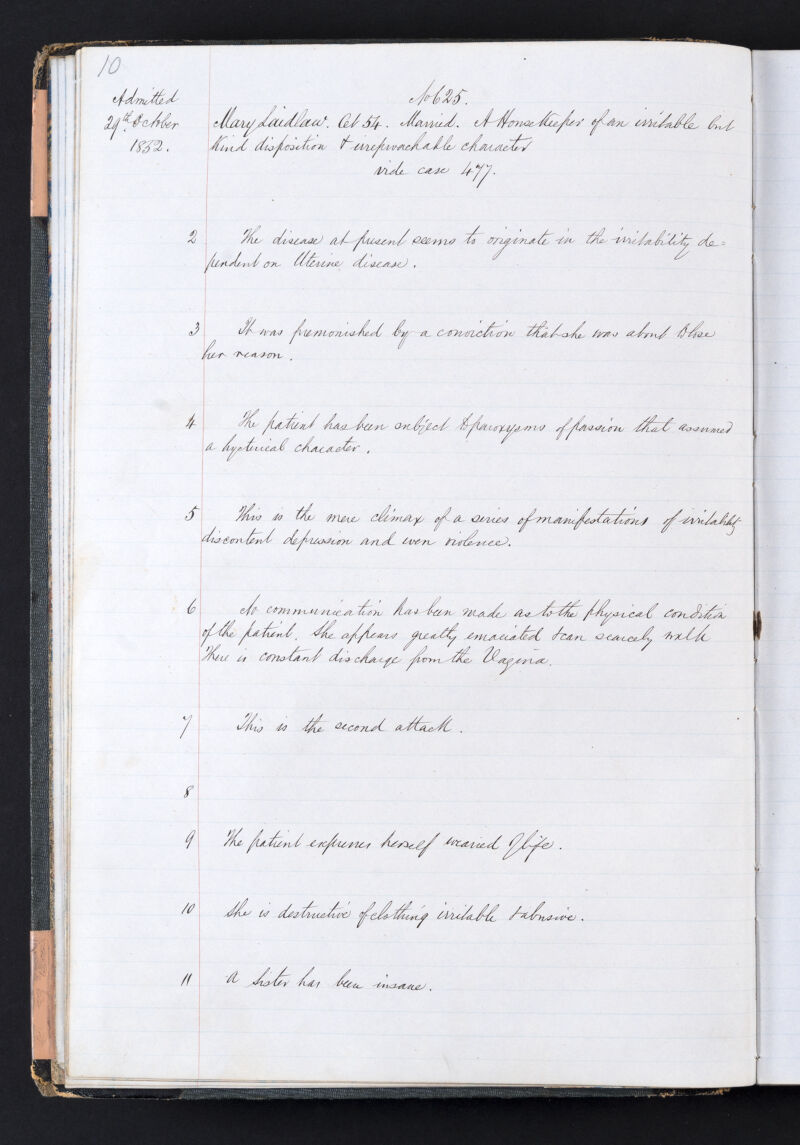 10
Admitted
29th October
1852.
No 625.
Mary Laidlaw. Aet 54. Married. A HouseKeeper of an irritable but
Kind disposition & irreproachable character
vide case 477.
2 The disease at present seems to originate in the irritability de=
pendent on Uterine disease.
3 It was premonished by a conviction that she was about to lose
her reason.
4 The patient has been subject to paroxysms of passion that assumed
a hysterical character.
5 This is the mere climax of a series of manifestations of irritability
discontent depression and even violence.
6 No communication has been made as to the physical condition
of the patient. She appears greatly emaciated & can scarcely walk
There is constant discharge from the Vagina.
7 This is the second attack.
8
9 The patient expresses herself wearied of life.
10 She is destructive of clothing irritable & abusive.
11 A Sister has been insane.